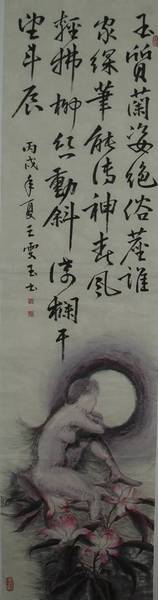 玉質蘭姿絕俗塵誰
家綵筆能傳神春風
輕拂柳絲動斜憑欄干
望斗辰
丙戌年夏王雲玉